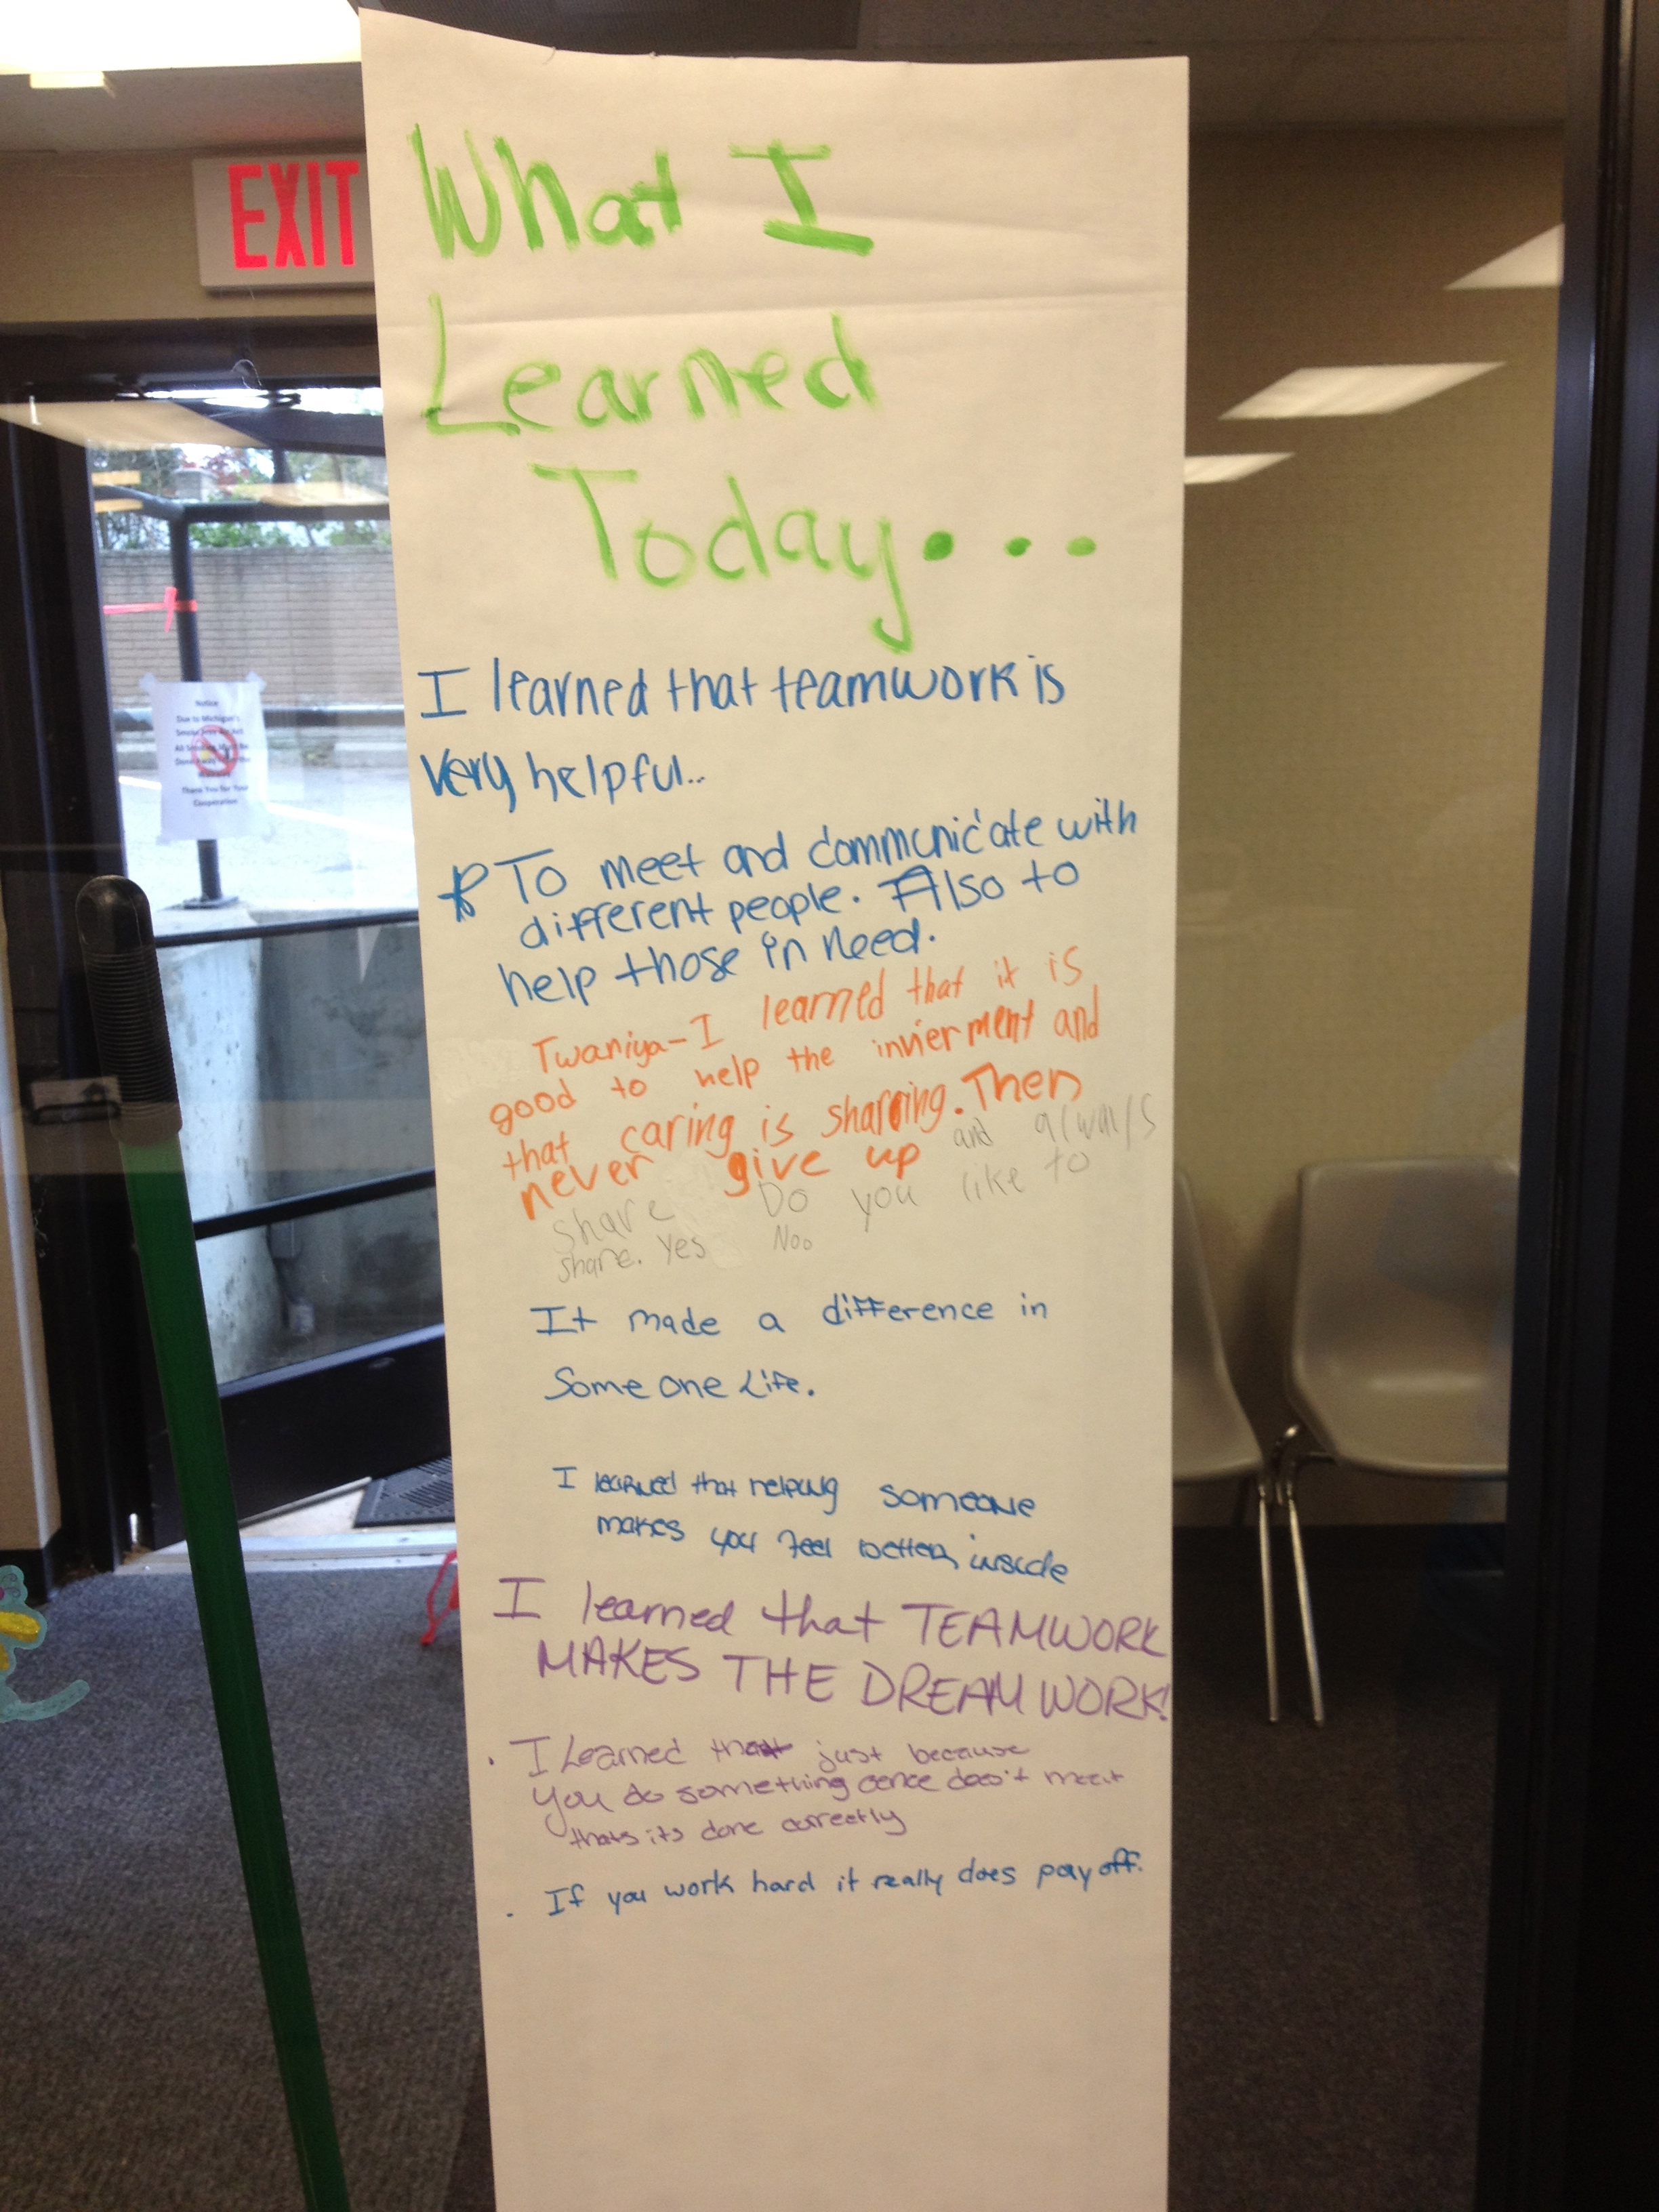 EXIT
What I
Learned
Today...
I learned that teamwork is
very helpful..
To meet and communicate with
different people. Also to
help those in need.
Twaniya-I learned that it is
good to help the invierment and
that caring is sharing. Then
never give up and always
share Do you like to
share. Yes Noo
It made a difference in
Some one Life.
I learned that helping someone
makes you feel better inside
I learned that TEAMWORK
MAKES THE DREAM WORK!
. I Learned that just because
you do something does't
thats its done correctly
. If you work hard it really does pay off.
Notice
Due to Michigan's
Thank You for Your
Cooperation